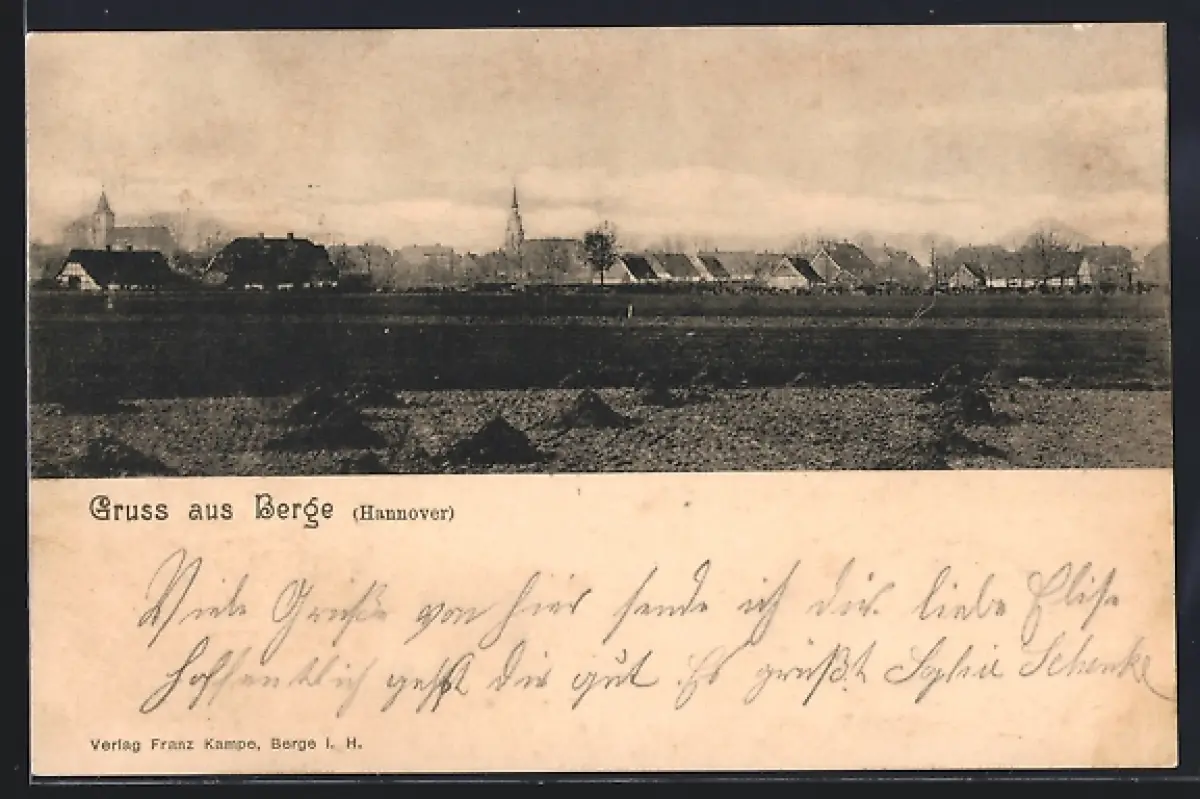 Gruss aus Berge (Hannover)
Viele Grüße von hier sende ich dir liebe Elise
Hoffentlich geht es dir gut Es grüßt Sophie Schenke
Verlag Franz Kampe, Berge i. H.